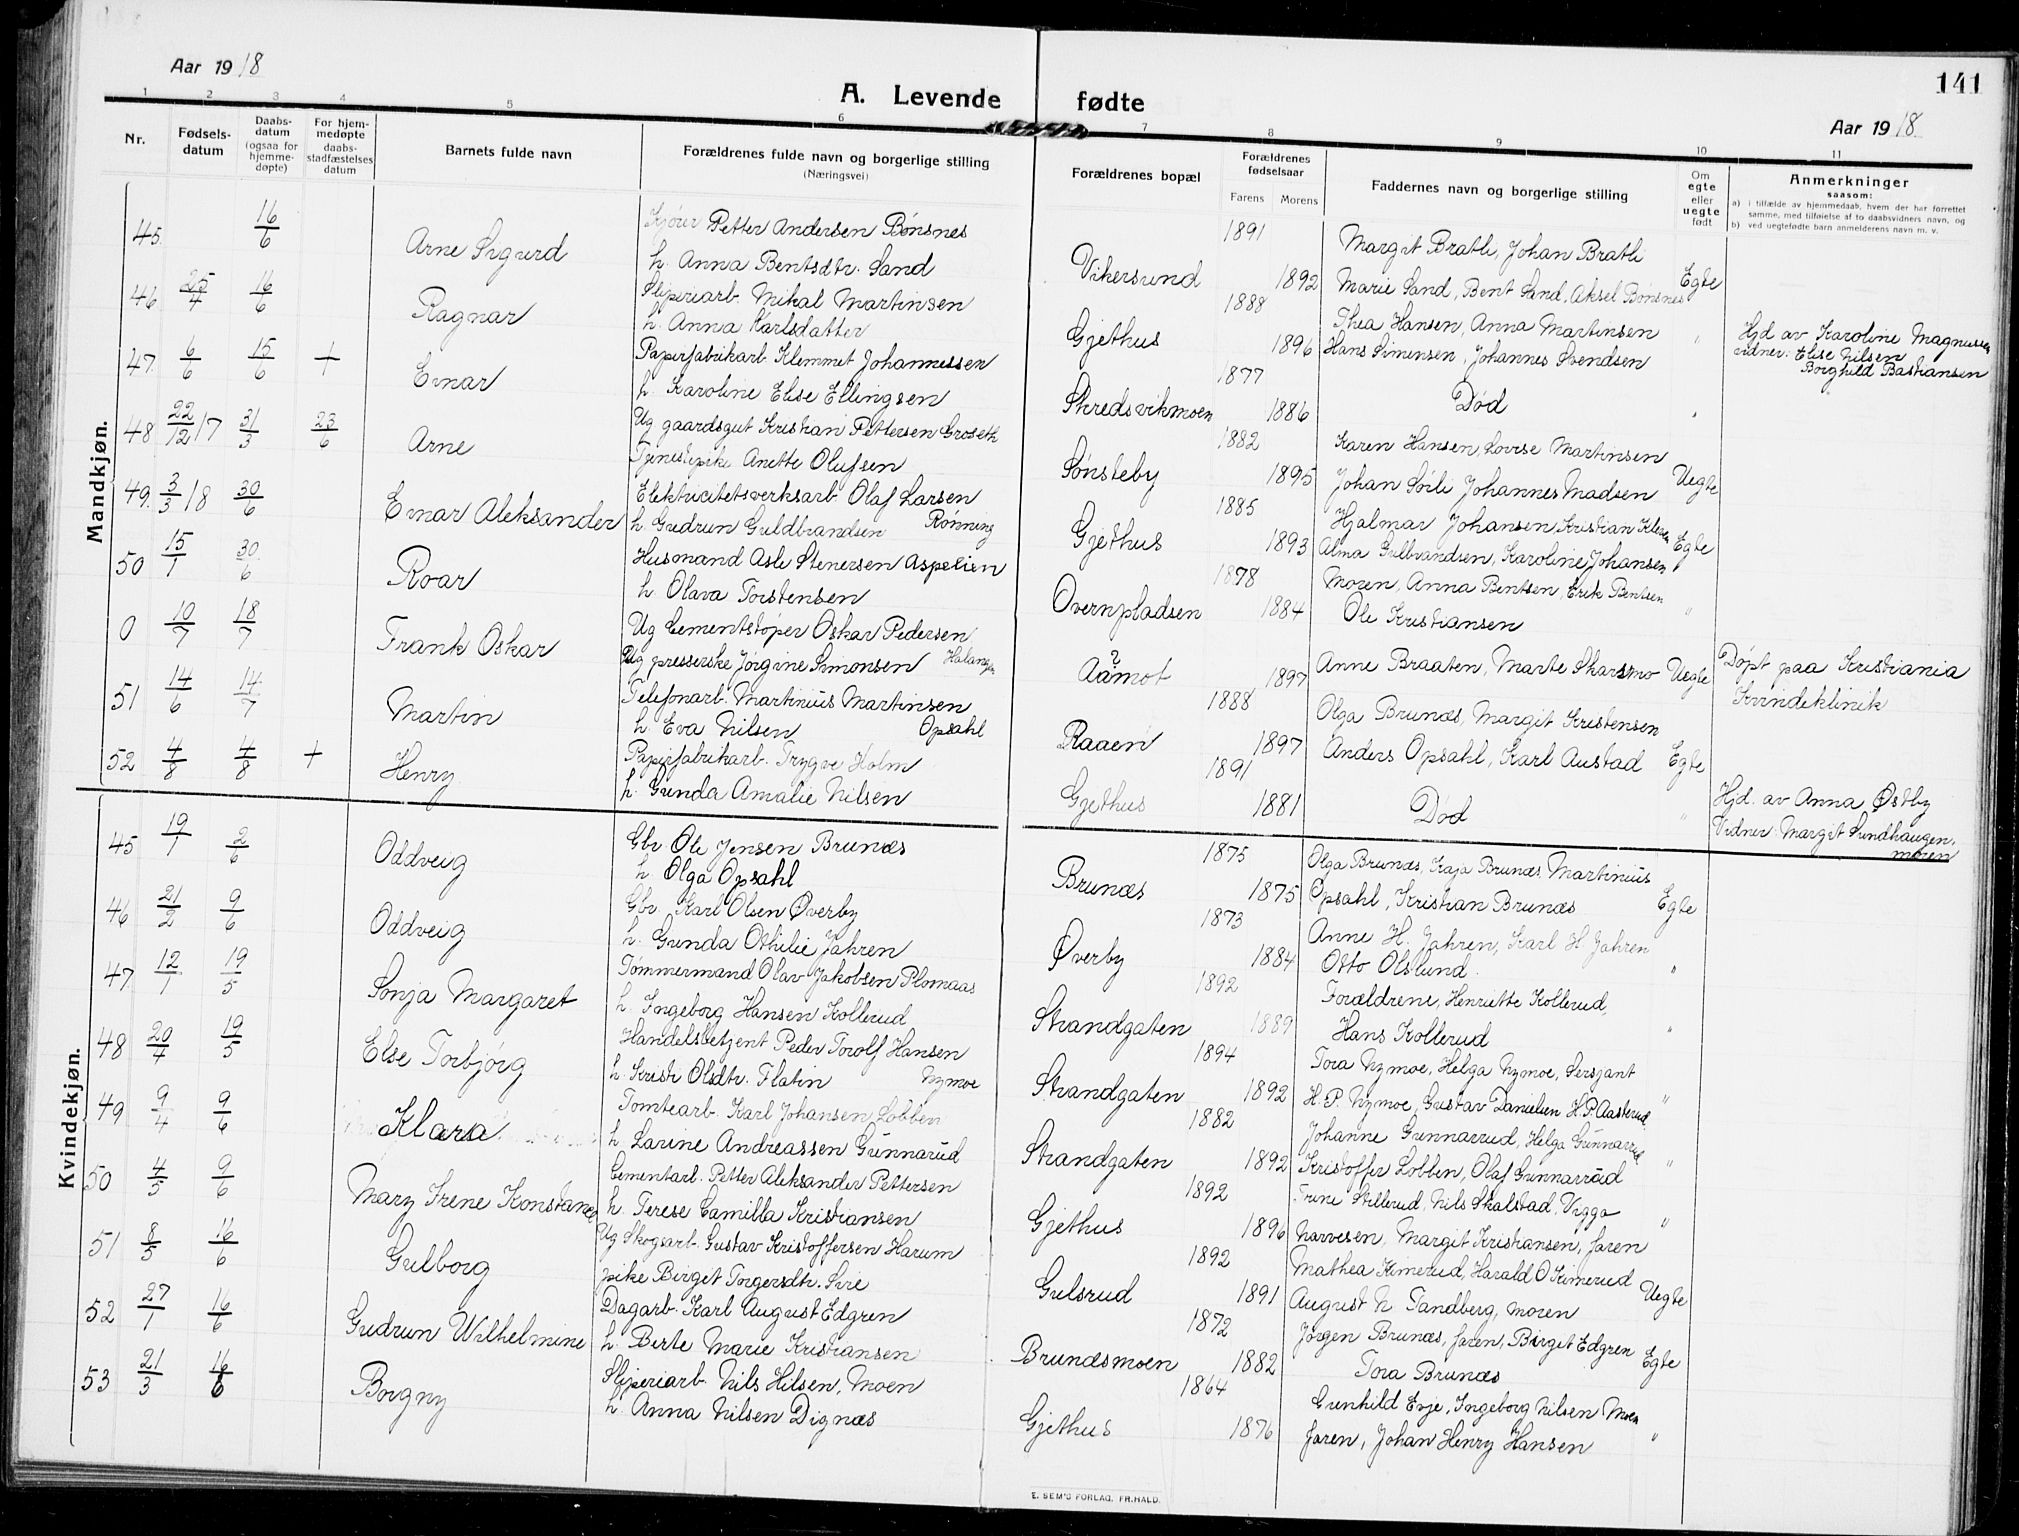 141
Aar 1918
A. Levende fødte
Aar 1918
1 2 3 4 5 6 7 8 9 10 11
Nr.
Fødsels-
datum
Daabs-
datum
(ogsaa for
hjemme-
døpte)
For hjem-
medøpte
daabs-
stadfæstelses
datum
Barnets fulde navn
Forældrenes fulde navn og borgerlige stilling
(Næringsvei)
Forældrenes bopæl
Forældrenes
fødselsaar
Farens Morens
Faddernes navn og borgerlige stilling
Om
egte
eller
uegte
født
Anmerkninger
saasom:
a) i tilfælde av hjemmedaab, hvem der har forrettet
samme, med tilføielse af to daabsvidners navn, og
b) ved uegtefødte barn anmelderens navn m. v.
Mandkjøn.
45 16/6 Arne Sigurd
Kjører Petter Andersen Bønsnes
h. Anna Bentsdtr. Sand
Vikersund 1891 1892
Margit Bratli, Johan Bratli
Marie Sand, Bent Sand, Aksel Bønsnes Egte
46 25/4 16/6 Ragnar
Sliperiarb. Mikal Martinsen
h. Anna Karlsdatter
Gjethus 1888 1896
Thea Hansen, Anna Martinsen "
Hans Simensen, Johannes Svendsen
47 6/6 15/6 + Einar
Papirfabrikarb Klemmet Johannessen
h. Karoline Elise Ellingsen
Skredsvikmoen 1877 1886
Død "
Hjd av Karoline Magnussen
vidner: Elise Nilsen
Borghild Bastiansen
48 22/12 17 31/3 23/6 Arne
Ug gaardsgut Kristian Pettersen Groseth
Tjenestepike Anette Olufsen
Sønsteby 1882 1895
Karen Hansen, Lovise Martinsen
Johan Sørli Johannes Madsen Uegte
49. 3/3 18 30/6 Einar Aleksander
Elektricitetsverksarb Olaf Larsen
h Gudrun Guldbrandsen Rønning
Gjethus 1885 1893
Hjalmar Johansen Kristian Kleven
Alma Gulbrandsen, Karoline Johansen Egte
50 15/1 30/6 Roar
Husmand Asle Stenersen Aspelien
h Olava Torstensen
Overnpladsen 1878 1884
Moren, Anna Bentsen, Erik Bentsen "
Ole Kristiansen
0 10/7 18/7 Frank Oskar
Ug Cementstøper Oskar Pedersen
Ug presserske Jørgine Simonsen
Aamot ? 1897
Anne Braaten, Marte Skarsmo Uegte
Døpt paa Kristiania
Kvindeklinik
51 14/6 14/7 Martin
Telefonarb. Martinius Martinsen
h. Eva Nilsen Opsahl
Raaen 1888 1897
Olga Brunæs, Margit Kristensen
Anders Opsahl, Karl Austad Egte
52 4/8 4/8 + Henry
Papirfabrikarb. Trygve Holm
h. Gunda Amalie Nilsen
Gjethus 1891 1881
Død "
Hjd. av Anna Østby
Vidner Margit Sundhaugen.
moren
Kvindekjøn.
45 19/1 2/6 Oddveig
Gbr Ole Jensen Brunæs
h Olga Opsahl
Brunæs 1875 1875
Olga Brunæs, Kaja Brunæs Martinius
Opsahl, Kristian Brunæs Egte
46 21/2 9/6 Oddveig
Gbr. Karl Olsen Øverby
h. Gunda Othilie Jahren
Øverby 1873 1884
Anne H. Jahren, Karl H Jahren
Otto Olslund. "
47 12/1 19/5 Sonja Margaret
Tømmermand Olav Jakobsen Plomaas
h. Ingeborg Hansen Kollerud
Strandgaten 1892 1889
Forældrene, Henriette Kollerud,
Hans Kollerud "
48 20/4 19/5 Else Torbjørg
Handelsbetjent Peder Torolf Hansen
h. Kristi Olsdtr. Flatin Nymoe
Strandgaten 1894 1892
Tora Nymoe, Helga Nymoe, Sersjant
H. P. Nymoe, Gustav Danielsen H.P. Aasterud "
49 9/4 9/6 Klara
Tomtearb. Karl Johansen Lobben
h Larine Andreassen Gunnarud
Strandgaten 1882 1892
Johanne Gunnarrud, Helga Gunnarrud
Kristoffer Lobben, Olaf Gunnarrud "
50 4/5 9/6 Mary Irene Konstance
Cementarb. Petter Aleksander Pettersen
h. Terese Camilla Kristiansen
Gjethus 1892 1896
Trine Stillerud, Nils Skalstad, Viggo
Narvesen, Margit Kristiansen, faren "
51 8/5 16/6 Gulborg
Ug Skogsarb. Gustav Kristoffersen Harum
pike Birgit Torgersdtr. Svie
Gulsrud 1892 1891
Mathea Kimerud, Harald O Kimerud
August N Tandberg, moren Uegte
52 27/1 16/6 Gudrun Wilhelmine
Dagarb. Karl August Edgren
h. Berte Marie Kristiansen
Brunæsmoen 1872 1882
Jørgen Brunæs, faren, Birgit Edgren
Tora Brunæs Egte
53 21/3 16/6 Borgny
Sliperiarb. Nils Nilsen, Moen
h. Anna Nilsen Dignæs
Gjethus 1864 1876
Gunhild Evje, Ingeborg Nilsen Moen
faren, Johan Henry Hansen "
E. SEM'S FORLAG, FR.HALD.